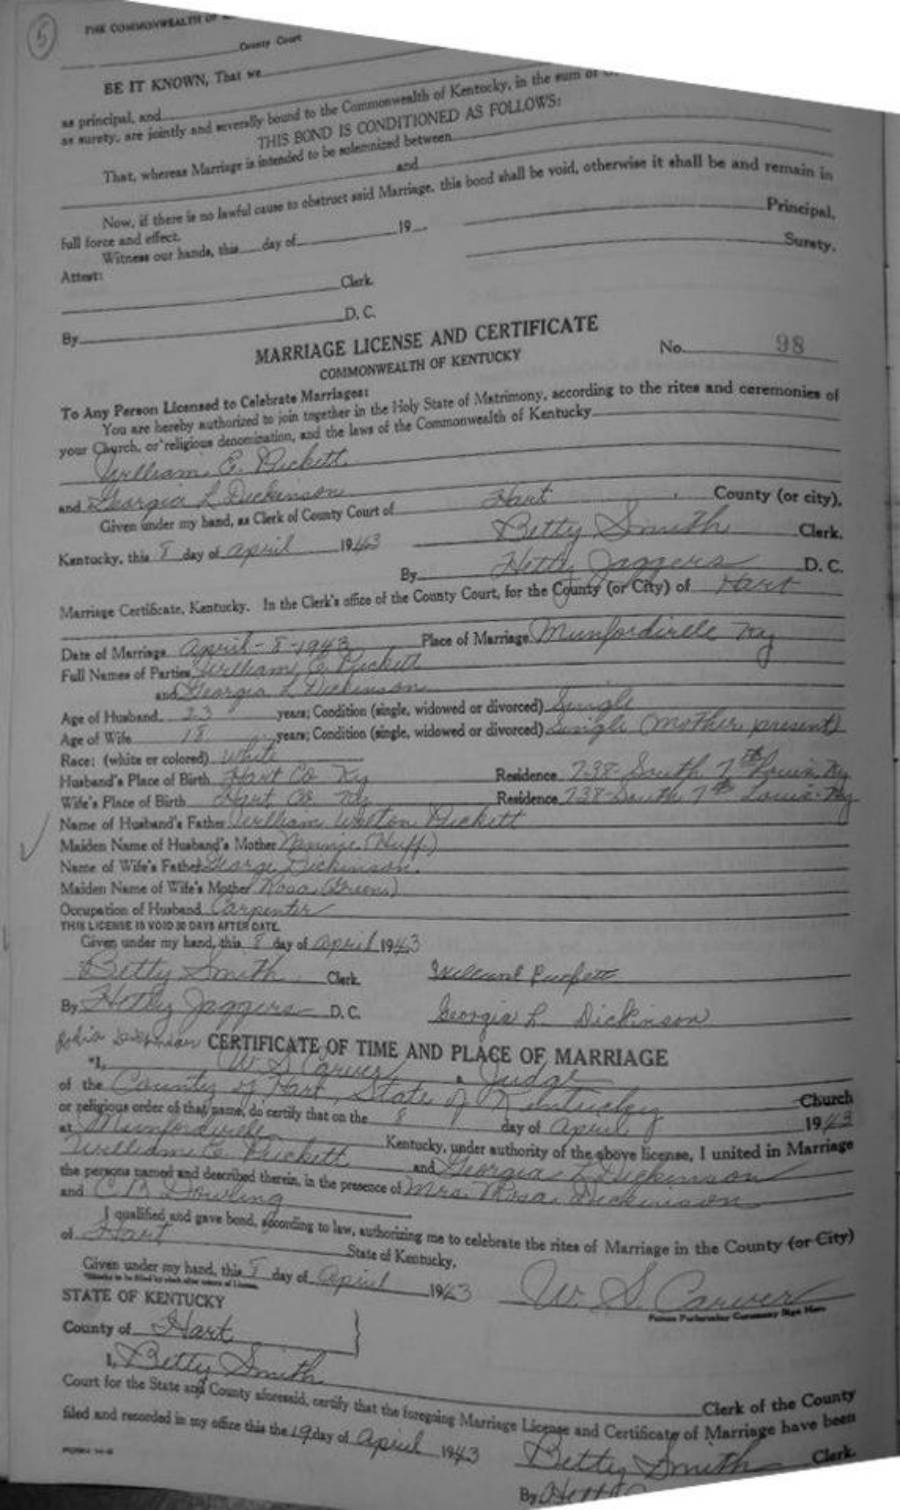 5
THE COMMONWEALTH OF
County Court
BE IT KNOWN, That we
as principal, and
as surety, are jointly and severally bound to the Commonwealth of Kentucky, in the sum of
THIS BOND IS CONDITIONED AS FOLLOWS:
That, whereas Marriage is intended to be solemnized between
and
Now, if there is no lawful cause to obstruct said Marriage, this bond shall be void, otherwise it shall be and remain in
full force and effect.
Witness our hands, this day of 19
Principal,
Surety.
Attest:
Clerk.
By D. C.
MARRIAGE LICENSE AND CERTIFICATE
COMMONWEALTH OF KENTUCKY
No. 98
To Any Person Licensed to Celebrate Marriages:
You are hereby authorized to join together in the Holy State of Matrimony, according to the rites and ceremonies of
your Church, or religious denomination, and the laws of the Commonwealth of Kentucky
William E. Puckett
and Georgia L Dickinson
Given under my hand, as Clerk of County Court of Hart County (or city),
Kentucky, this 8 day of April 1943 Betty Smith Clerk.
By Hetty Jaggers D. C.
Marriage Certificate, Kentucky. In the Clerk's office of the County Court, for the County (or City) of Hart
Date of Marriage April-8-1943 Place of Marriage Munfordville Ky
Full Names of Parties William E Puckett
and Georgia L Dickinson
Age of Husband 23 years; Condition (single, widowed or divorced) Single
Age of Wife 18 years; Condition (single, widowed or divorced) Single (Mother present)
Race: (white or colored) White
Husband's Place of Birth Hart Co Ky Residence 738-South 7th Louis. Ky
Wife's Place of Birth Hart Co Ky Residence 738-South 7th Louis-Ky
Name of Husband's Father William Walton Puckett
Maiden Name of Husband's Mother Nannie (Huff)
Name of Wife's Father George Dickinson
Maiden Name of Wife's Mother Rosa (Greens)
Occupation of Husband Carpenter
THIS LICENSE IS VOID 30 DAYS AFTER DATE.
Given under my hand, this 8 day of April 1943
Betty Smith Clerk
By Hetty Jaggers D. C. Georgia L Dickinson
CERTIFICATE OF TIME AND PLACE OF MARRIAGE
*I, W S Carver a Judge
of the County of Hart, State of Kentucky Church
or religious order of that name, do certify that on the 8 day of April 8 1943
at Munfordville Kentucky, under authority of the above license, I united in Marriage
William E. Puckett and Georgia L Dickinson
the persons named and described therein, in the presence of Mrs. Rosa Dickinson
and C B Dowling
I qualified and gave bond, according to law, authorizing me to celebrate the rites of Marriage in the County (or City)
of Hart State of Kentucky.
Given under my hand, this 8 day of April 1943 W. S. Carver
Person Performing Ceremony Sign Here
STATE OF KENTUCKY
County of Hart
I, Betty Smith Clerk of the County
Court for the State and County aforesaid, certify that the foregoing Marriage License and Certificate of Marriage have been
filed and recorded in my office this the 19 day of April 1943 Betty Smith Clerk.
By